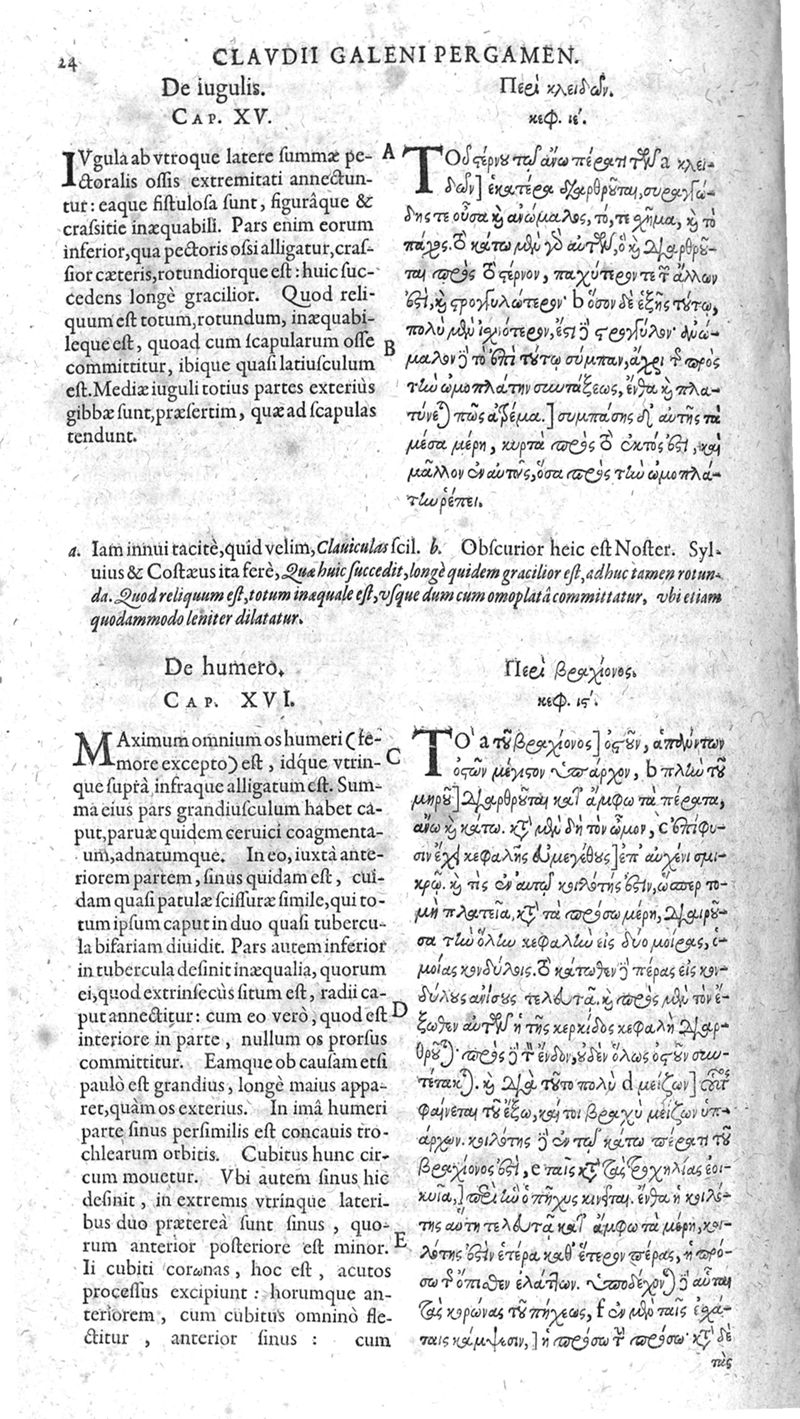 24
CLAVDII GALENI PERGAMEN.
De iugulis.
CAP. XV.
IVgula ab vtroque latere summæ pe-
ctoralis ossis extremitati annectun-
tur: eaque fistulosa sunt, figurâque &
crassitie inæquabili. Pars enim eorum
inferior, qua pectoris ossi alligatur, cras-
sior cæteris, rotundiorque est: huic suc-
cedens longè gracilior. Quod reli-
quum est totum, rotundum, inæquabi-
leque est, quoad cum scapularum osse
committitur, ibique quasi latiusculum
est. Mediæ iuguli totius partes exteriùs
gibbæ sunt, præsertim, quæ ad scapulas
tendunt.
A
B
Περὶ κλειδῶν.
κεφ. ιέ.
ΤΟ στέρνου τῷ ἄνω πέρατι τῶν a κλει-
δῶν] ἑκατέρα διαρθροῦται, συραγγώ-
δης τε οὖσα καὶ ἀνώμαλος, τό, τε χῆμα, καὶ τὸ
πάχος. τὸ κάτω μὲν γὸ αὐτῶν, ὃ καὶ διαρθροῦ-
ται πρὸς τὸ στέρνον, παχύτερόν τε τῶν ἄλλων
ἐστὶ, καὶ στρογγυλώτερον· b ὅσον δὲ ἑξῆς τούτῳ,
πολὺ μὲν ἰχνότερον, ἔστι δὲ στρογγύλον· ἀνώ-
μαλον δὲ τὸ ἐπὶ τούτῳ σύμπαν, ἄχρι τῆς πρὸς
τὴν ὠμοπλάτην συντάξεως, ἔνθα καὶ πλα-
τύνεται πῶς ἀτρέμα.] συμπάσης δ' αὐτῆς τὰ
μέσα μέρη, κυρτὰ πρὸς τὸ ἐκτός ἐστι, καὶ
μᾶλλον ἐν αὐτοῖς, ὅσα πρὸς τὴν ὠμοπλά-
την ῥέπει.
a. Iam innui tacitè, quid velim, Clauiculas scil. b. Obscurior heic est Noster. Syl-
uius & Costæus ita ferè, Quæ huic succedit, longè quidem gracilior est, adhuc tamen rotun-
da. Quod reliquum est, totum inæquale est, vsque dum cum omoplatâ committatur, vbi etiam
quodammodo leniter dilatatur.
De humero.
CAP. XVI.
MAximum omnium os humeri (fe-
more excepto) est, idque vtrin-
que suprà infraque alligatum est. Sum-
ma eius pars grandiusculum habet ca-
put, paruæ quidem ceruici coagmenta-
um, adnatumque. In eo, iuxtà ante-
riorem partem, sinus quidam est, cui-
dam quasi patulæ scissuræ simile, qui to-
tum ipsum caput in duo quasi tubercu-
la bifariam diuidit. Pars autem inferior
in tubercula desinit inæqualia, quorum
ei, quod extrinsecùs situm est, radii ca-
put annectitur: cum eo verò, quod est
interiore in parte, nullum os prorsus
committitur. Eamque ob causam etsi
paulò est grandius, longè maius appa-
ret, quàm os exterius. In imâ humeri
parte sinus persimilis est concauis tro-
chlearum orbitis. Cubitus hunc cir-
cum mouetur. Vbi autem sinus hic
definit, in extremis vtrinque lateri-
bus duo prætereà sunt sinus, quo-
rum anterior posteriore est minor.
Ii cubiti corωnas, hoc est, acutos
processus excipiunt: horumque an-
teriorem, cum cubitus omninò fle-
ctitur, anterior sinus: cum
C
D
E
Περὶ βραχίονος.
κεφ. ις'.
ΤΟ' a τοῦ βραχίονος] ὀστοῦν, ἁπάντων
ὀστῶν μέγιστον ὑπάρχον, b πλὴν τοῦ
μηροῦ] διαρθροῦται κατ' ἄμφω τὰ πέρατα,
ἄνω καὶ κάτω. κατὰ μὲν δὴ τὸν ὦμον, c ἐπίφυ-
σιν ἔχει κεφαλῆς εὐμεγέθους] ἐπ' αὐχένι σμι-
κρῷ. καί τις ἐν αὐτῷ κοιλότης ἐστὶν, ὥσπερ το-
μὴ πλατεῖα, κατὰ τὰ πρόσω μέρη, διαιροῦ-
σα τὴν ὅλην κεφαλὴν εἰς δύο μοίρας, ὁ-
μοίας κονδύλοις. τὸ κάτωθεν δὲ πέρας εἰς κον-
δύλους ἀνίσους τελευτᾷ. καὶ πρὸς μὲν τὸν ἔ-
ξωθεν αὐτῶν ἡ τῆς κερκίδος κεφαλὴ διαρ-
θροῦται· πρὸς δὲ τὸν ἔνδον, οὐδὲν ὅλως ὀστοῦν συν-
τέτακται. καὶ διὰ τοῦτο πολὺ d μείζων] οὗτος
φαίνεται τοῦ ἔξω, καί τοι βραχὺ μείζων ὑπ-
άρχων. κοιλότης δὲ ἐν τῷ κάτω πέρατι τοῦ
βραχίονός ἐστι, e ταῖς κατὰ τὰς τροχηλίας ἐοι-
κυῖα,] περὶ ἣν ὁ πῆχυς κινεῖται. ἔνθα ἡ κοιλό-
της αὕτη τελευτᾷ κατ' ἄμφω τὰ μέρη, κοι-
λότης ἐστὶν ἑτέρα καθ' ἕτερον πέρας, ἡ πρό-
σω τῆς ὄπισθεν ἐλάττων. ὑποδέχονται δὲ αὗται
τὰς κορώνας τοῦ πήχεως, f ἐν μὲν ταῖς ἐχά-
ταις κάμψεσιν,] ἡ πρόσω τὴν πρόσω· κατὰ δὲ
τὰς